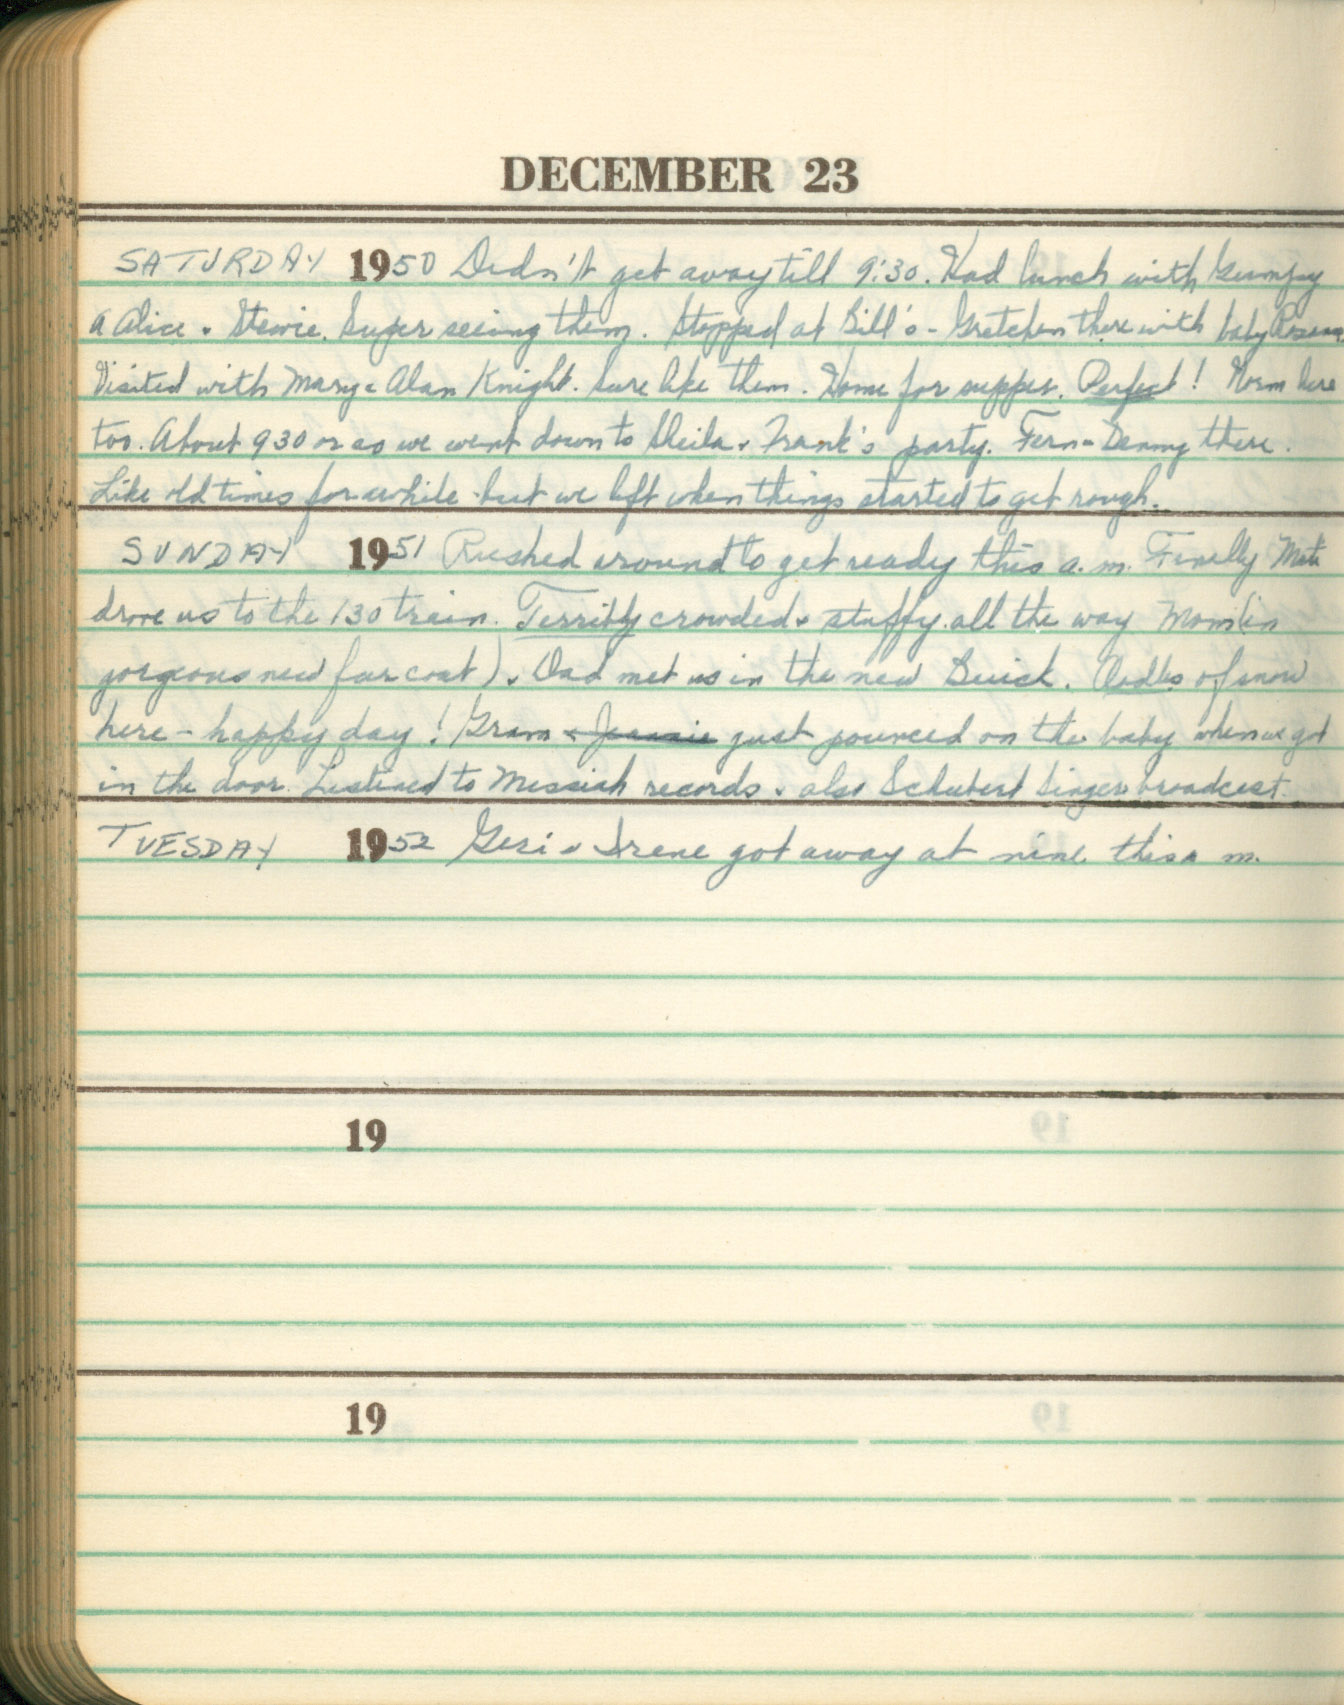 DECEMBER 23
SATURDAY 1950 Didn't get away till 9:30. Had lunch with Grampy
a Alice & Stewie. Super seeing them. Stopped at Bill's - Gretchen there with baby
Visited with Mary & Alan Knight. Sure like them. Home for supper. Perfect! Norm here
too. About 930 or so we went down to Sheila & Frank's party. Fern & Denny there.
Like old times for awhile but we left when things started to get rough.
SUNDAY 1951 Rushed around to get ready this a.m. Finally
drove us to the 130 train. Terribly crowded & stuffy all the way Mom (in
gorgeous new fur coat) & Dad met us in the new Buick. Oodles of snow
here - happy day! Gram & Jeannie just pounced on the baby when we got
in the door. Listened to Messiah records & also Schubert Singer broadcast.
TUESDAY 1952 Geri & Irene got away at nine this a m.
19
19